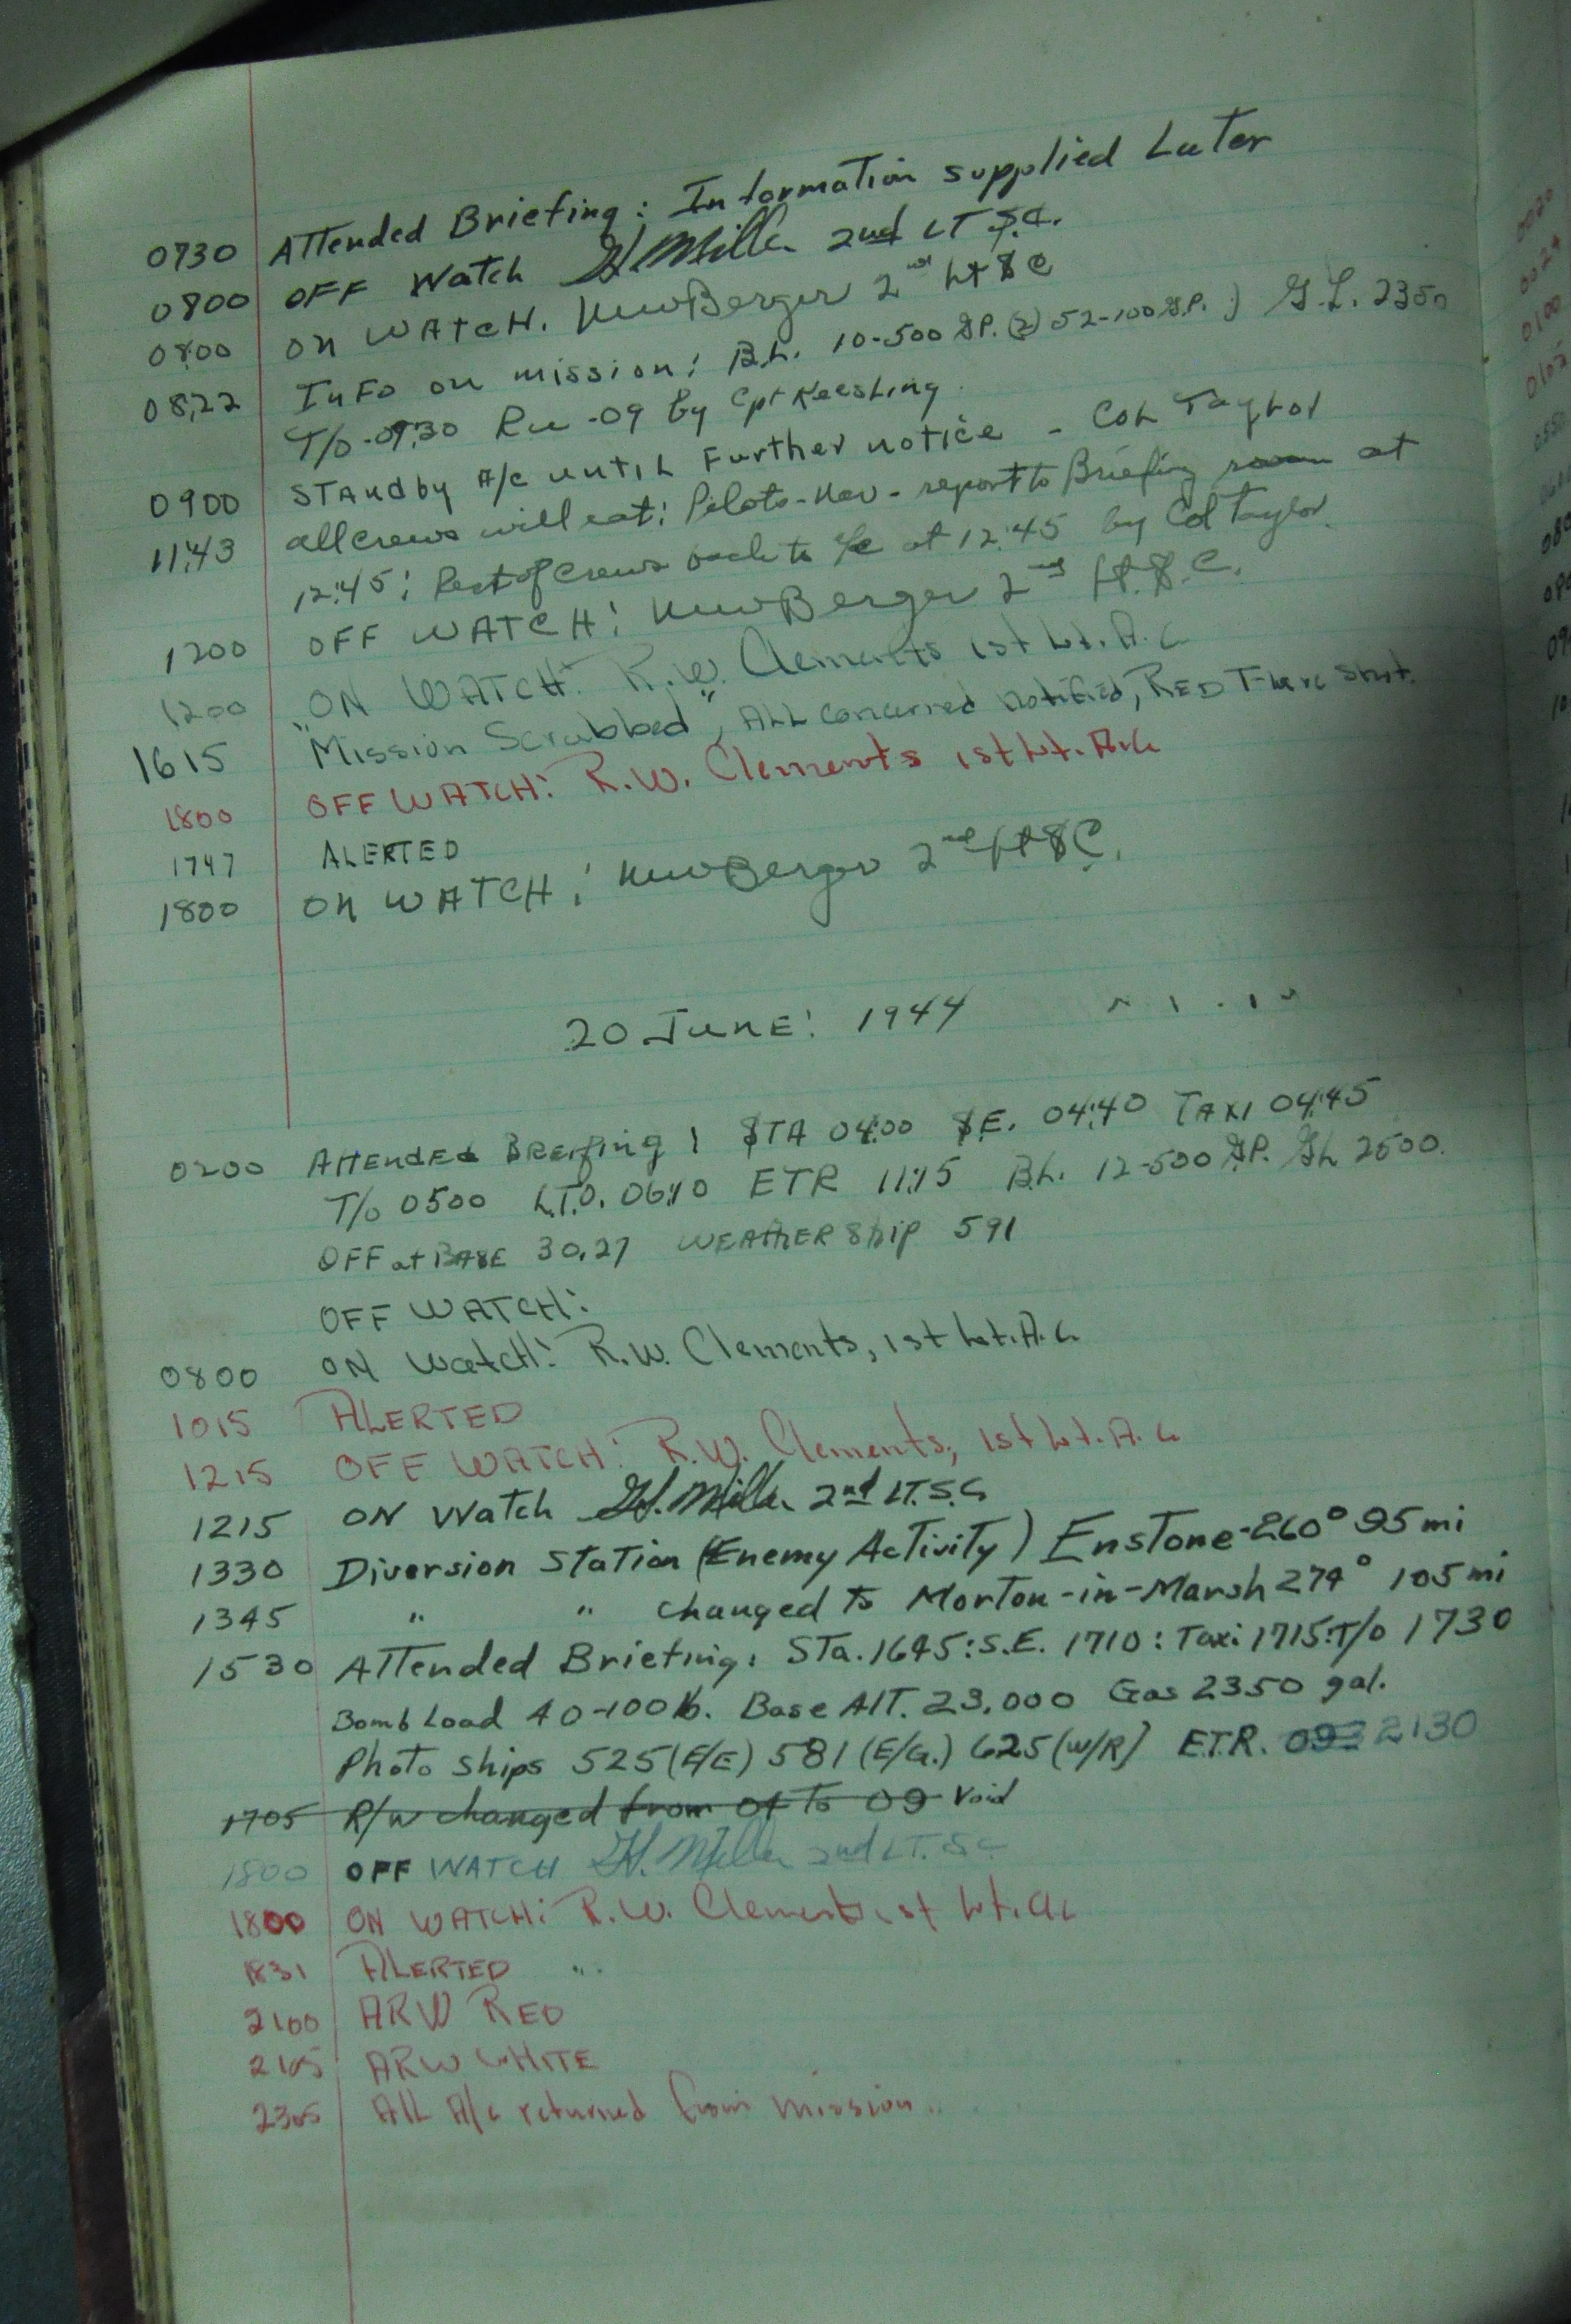 0730 Attended Briefing: Information supplied Later
0800 OFF Watch H. Miller 2nd LT S.C.
0800 ON WATCH. NewBerger 2nd Lt S C
08:22 InFo on mission: B.L. 10-500 G.P. (2) 52-100 G.P. ) G.L. 2350
T/O-09:30 Ru-09 by Cpt Keesling.
0900 STANdby A/c UNTIL Further notice - COL Taylor
11:43 all crews will eat: Pilots-Nav- report to Briefing room at
12:45: Rest of Crews back to A/c at 12:45 by Col Taylor.
1200 OFF WATCH: NewBerger 2nd Lt. S.C.
1200 ON WATCH: R.W. Clements 1st Lt. A.C
1615 "Mission Scrubbed", ALL concerned notified, RED Flare shot.
1800 OFF WATCH: R.W. Clements 1st Lt. A.C
1747 ALERTED
1800 ON WATCH: NewBerger 2nd Lt S C.
20 JUNE: 1944
0200 ATTENDEd BREIFing: STA 04:00 S.E. 04:40 TAXI 04:45
T/O 0500 L.T.O. 06:10 ETR 11:15 B.L. 12-500 G.P. GL 2500.
OFF at BASE 30,27 WEATHER Ship 591
OFF WATCH:
0800 ON Watch: R.W. Clements, 1st Lt. A.C
1015 ALERTED
1215 OFF WATCH: R.W. Clements, 1st Lt. A.C
1215 ON Watch H. Miller 2nd LT. S.C
1330 Diversion Station (Enemy Activity) Enstone-260° 95 mi
1345 " " changed to Morton-in-Marsh 274° 105 mi
1530 Attended Briefing: STa. 1645: S.E. 1710: Taxi 1715: T/O 1730
Bomb Load 40-100 lb. Base Alt. 23,000 Gas 2350 gal.
Photo ships 525 (E/E) 581 (E/G.) 625 (W/R) E.T.R. 2130
1705 R/W changed from 04 To 09 Void
1800 OFF WATCH H. Miller 2nd LT. S.C
1800 ON WATCH: R.W. Clements 1st Lt. A.C
1831 ALERTED "
2100 ARW RED
2105 ARW WHITE
2305 All A/c returned from mission.